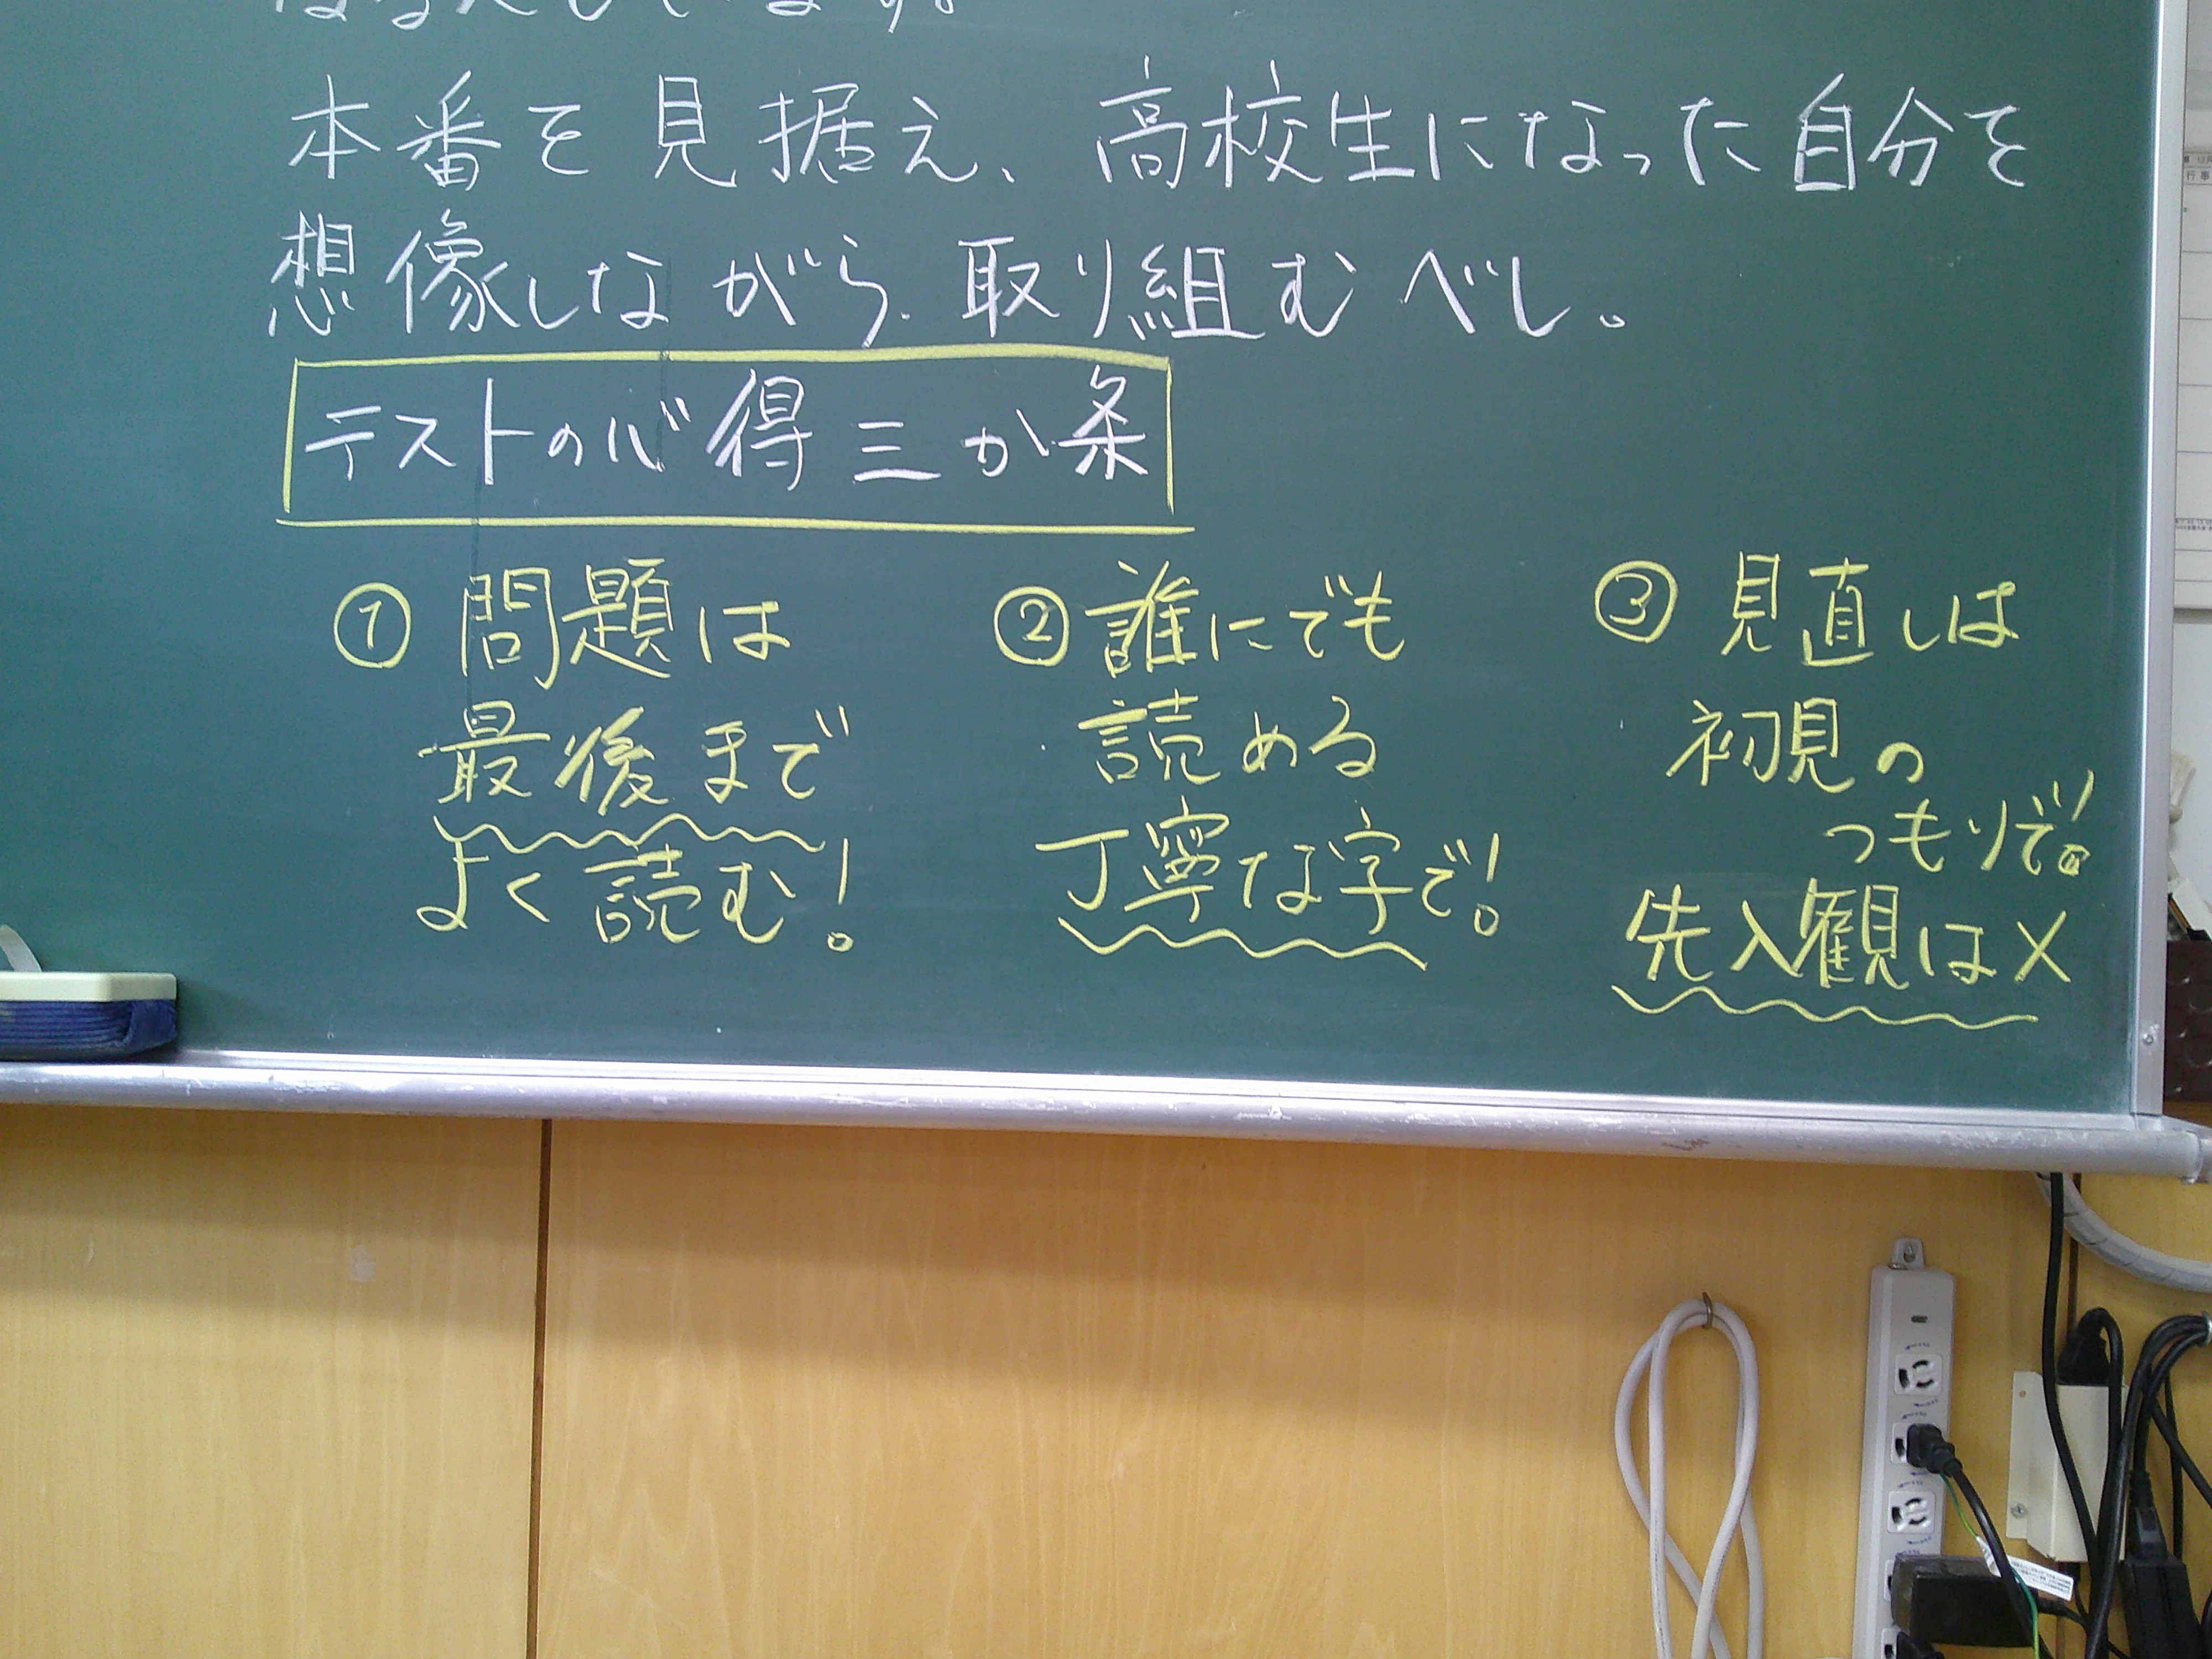 本番を見据え、高校生になった自分を
想像しながら、取り組むべし。
テストの心得三か条
① 問題は
最後まで
よく読む!
② 誰にでも
読める
丁寧な字で!
③ 見直しは
初見の
つもりで!!
先入観は×